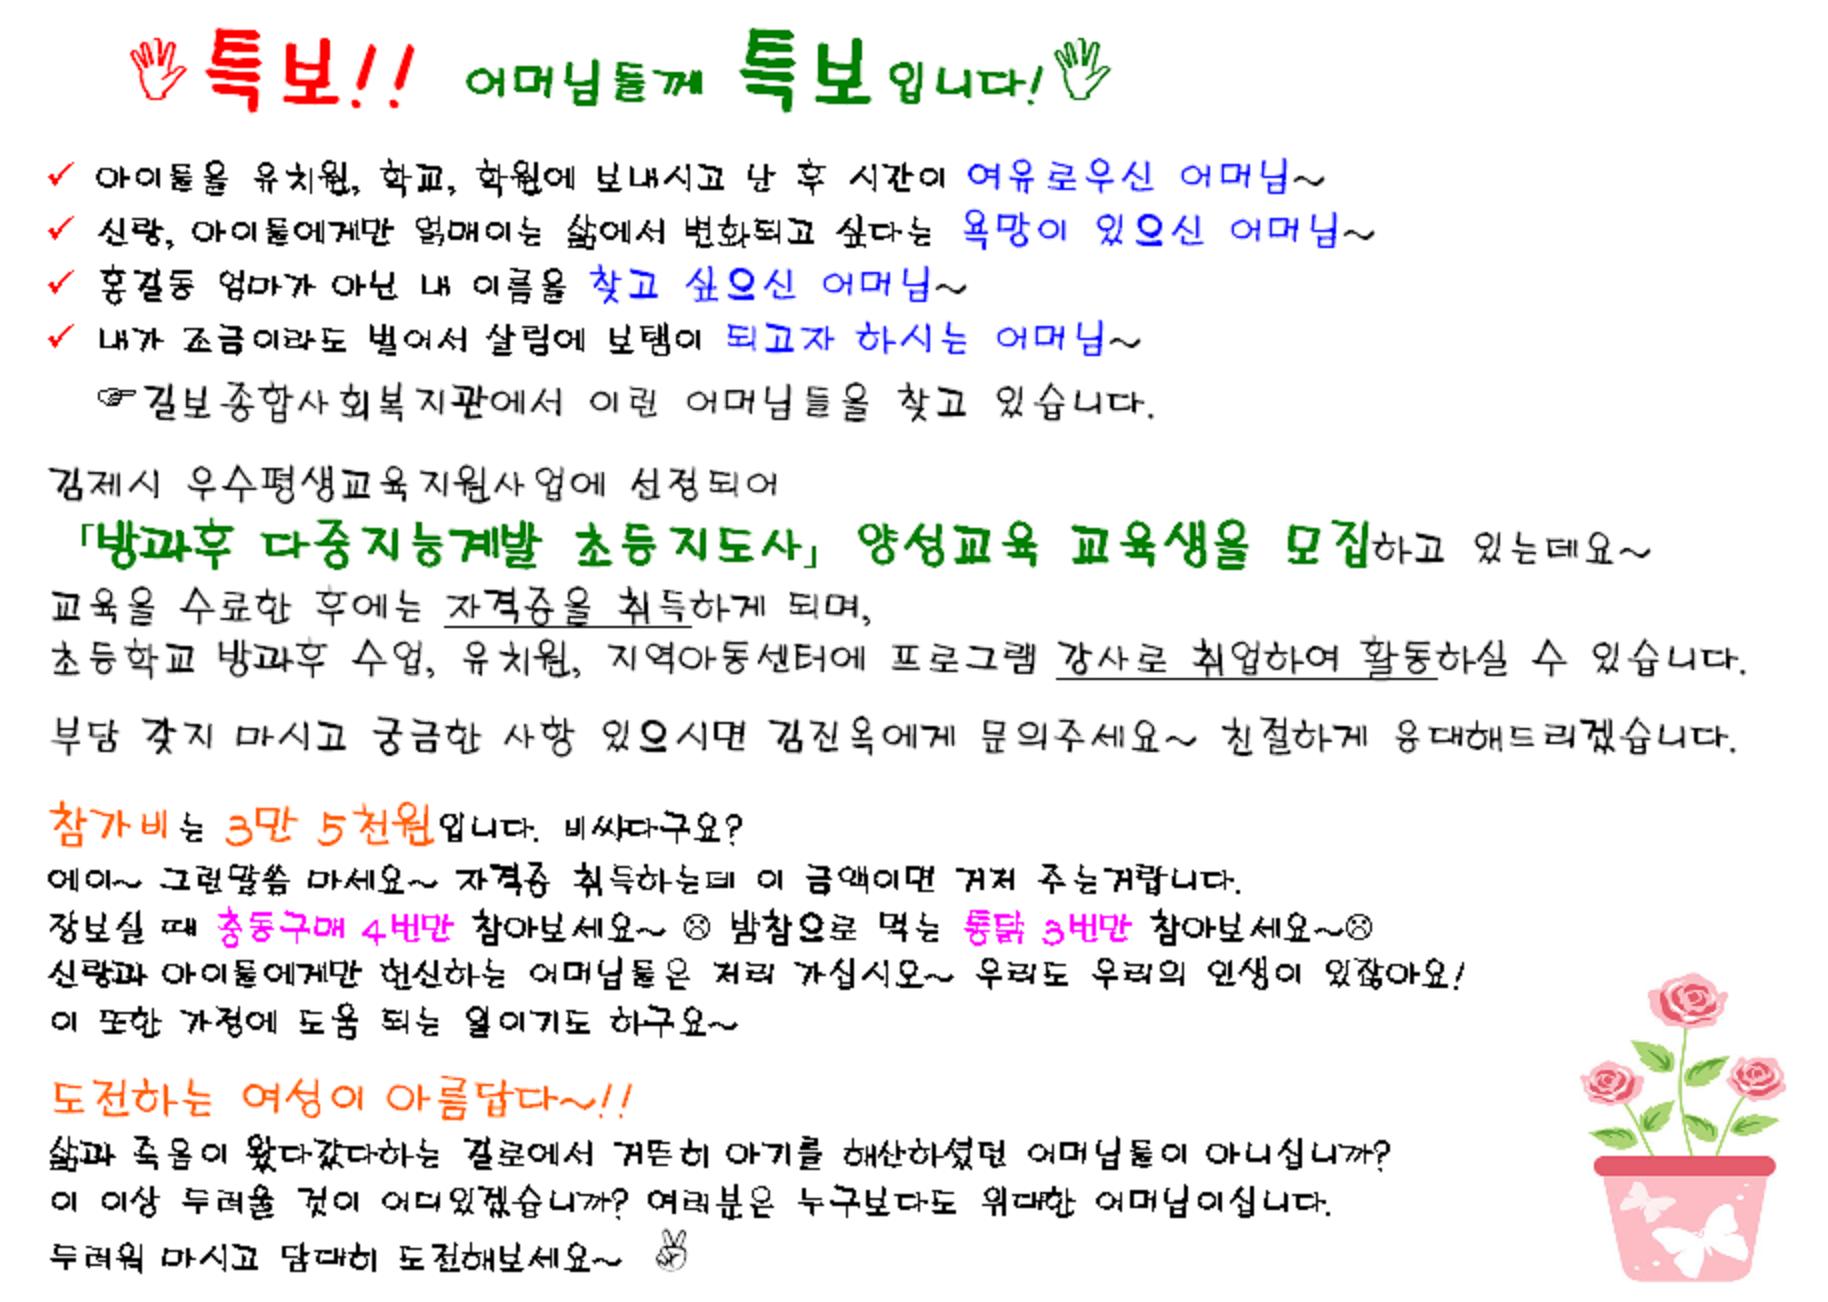 특보!! 어머님들께 특보입니다!
✓ 아이들을 유치원, 학교, 학원에 보내시고 난 후 시간이 여유로우신 어머님~
✓ 신랑, 아이들에게만 얽매이는 삶에서 변화되고 싶다는 욕망이 있으신 어머님~
✓ 홍길동 엄마가 아닌 내 이름을 찾고 싶으신 어머님~
✓ 내가 조금이라도 벌어서 살림에 보탬이 되고자 하시는 어머님~
☞길보종합사회복지관에서 이런 어머님들을 찾고 있습니다.
김제시 우수평생교육지원사업에 선정되어
「방과후 다중지능계발 초등지도사」 양성교육 교육생을 모집하고 있는데요~
교육을 수료한 후에는 자격증을 취득하게 되며,
초등학교 방과후 수업, 유치원, 지역아동센터에 프로그램 강사로 취업하여 활동하실 수 있습니다.
부담 갖지 마시고 궁금한 사항 있으시면 김진옥에게 문의주세요~ 친절하게 응대해드리겠습니다.
참가비는 3만 5천원입니다. 비싸다구요?
에이~ 그런말씀 마세요~ 자격증 취득하는데 이 금액이면 거저 주는거랍니다.
장보실 때 충동구매 4번만 참아보세요~ ☹ 밤참으로 먹는 통닭 3번만 참아보세요~☹
신랑과 아이들에게만 헌신하는 어머님들은 저리 가십시오~ 우리도 우리의 인생이 있잖아요!
이 또한 가정에 도움 되는 일이기도 하구요~
도전하는 여성이 아름답다~!!
삶과 죽음이 왔다갔다하는 길로에서 거뜬히 아기를 해산하셨던 어머님들이 아니십니까?
이 이상 두려울 것이 어디있겠습니까? 여러분은 누구보다도 위대한 어머님이십니다.
두려워 마시고 담대히 도전해보세요~ ✌